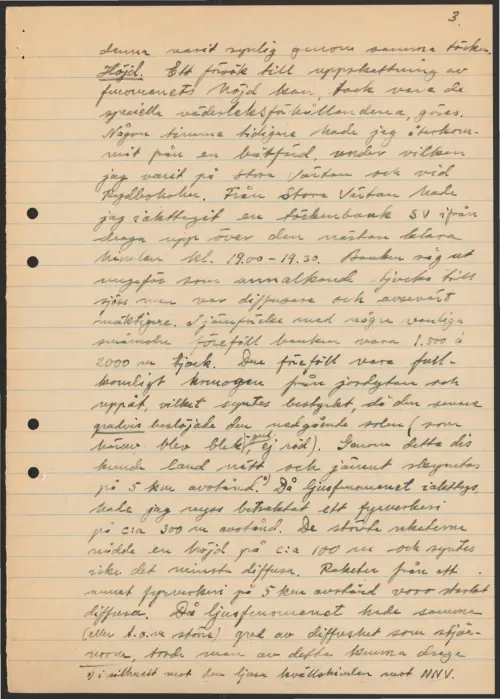 3.
denna varit synlig genom samma töcken.
Höjd. Ett försök till uppskattning av
fenomenets höjd kan, tack vare de
speciella väderleksförhållandena, göras.
Någon timma tidigare hade jag återkom-
mit från en båtfärd, under vilken
jag varit på Stora Värtan och vid
Rydboholm. Från Stora Värtan hade
jag iakttagit en töckenbank SV ifrån
draga upp över den nästan klara
himlen kl. 19.00-19.30. Banken såg ut
ungefär som annalkande tjocka till
sjöss men var diffusare och avsevärt
mäktigare. I jämförelse med några vanliga
småmoln förefföll banken vara 1.500 à
2000 m tjock. Den föreföll vara full-
komligt homogen från jordytan och
uppåt, vilket syntes bestyrkt, då den senare
gradvis beslöjade den nedgående solen (som
härav blev blek-gul, ej röd). Genom detta dis
kunde land nätt och jämnt skymtas
på 5 km avstånd.*) Då ljusfenomenet iakttogs,
hade jag nyss betraktat ett fyrverkeri
på c:a 300 m avstånd. De största raketerna
nådde en höjd på c:a 100 m och syntes
icke det minsta diffusa. Raketer från ett
annat fyrverkeri på 5 km avstånd voro starkt
diffusa. Då ljusfenomenet hade samma
(eller t.o.m. större) grad av diffushet som stjär-
norna, torde man av detta kunna draga
*) i silhuett mot den ljusa kvällshimlen mot NNV.